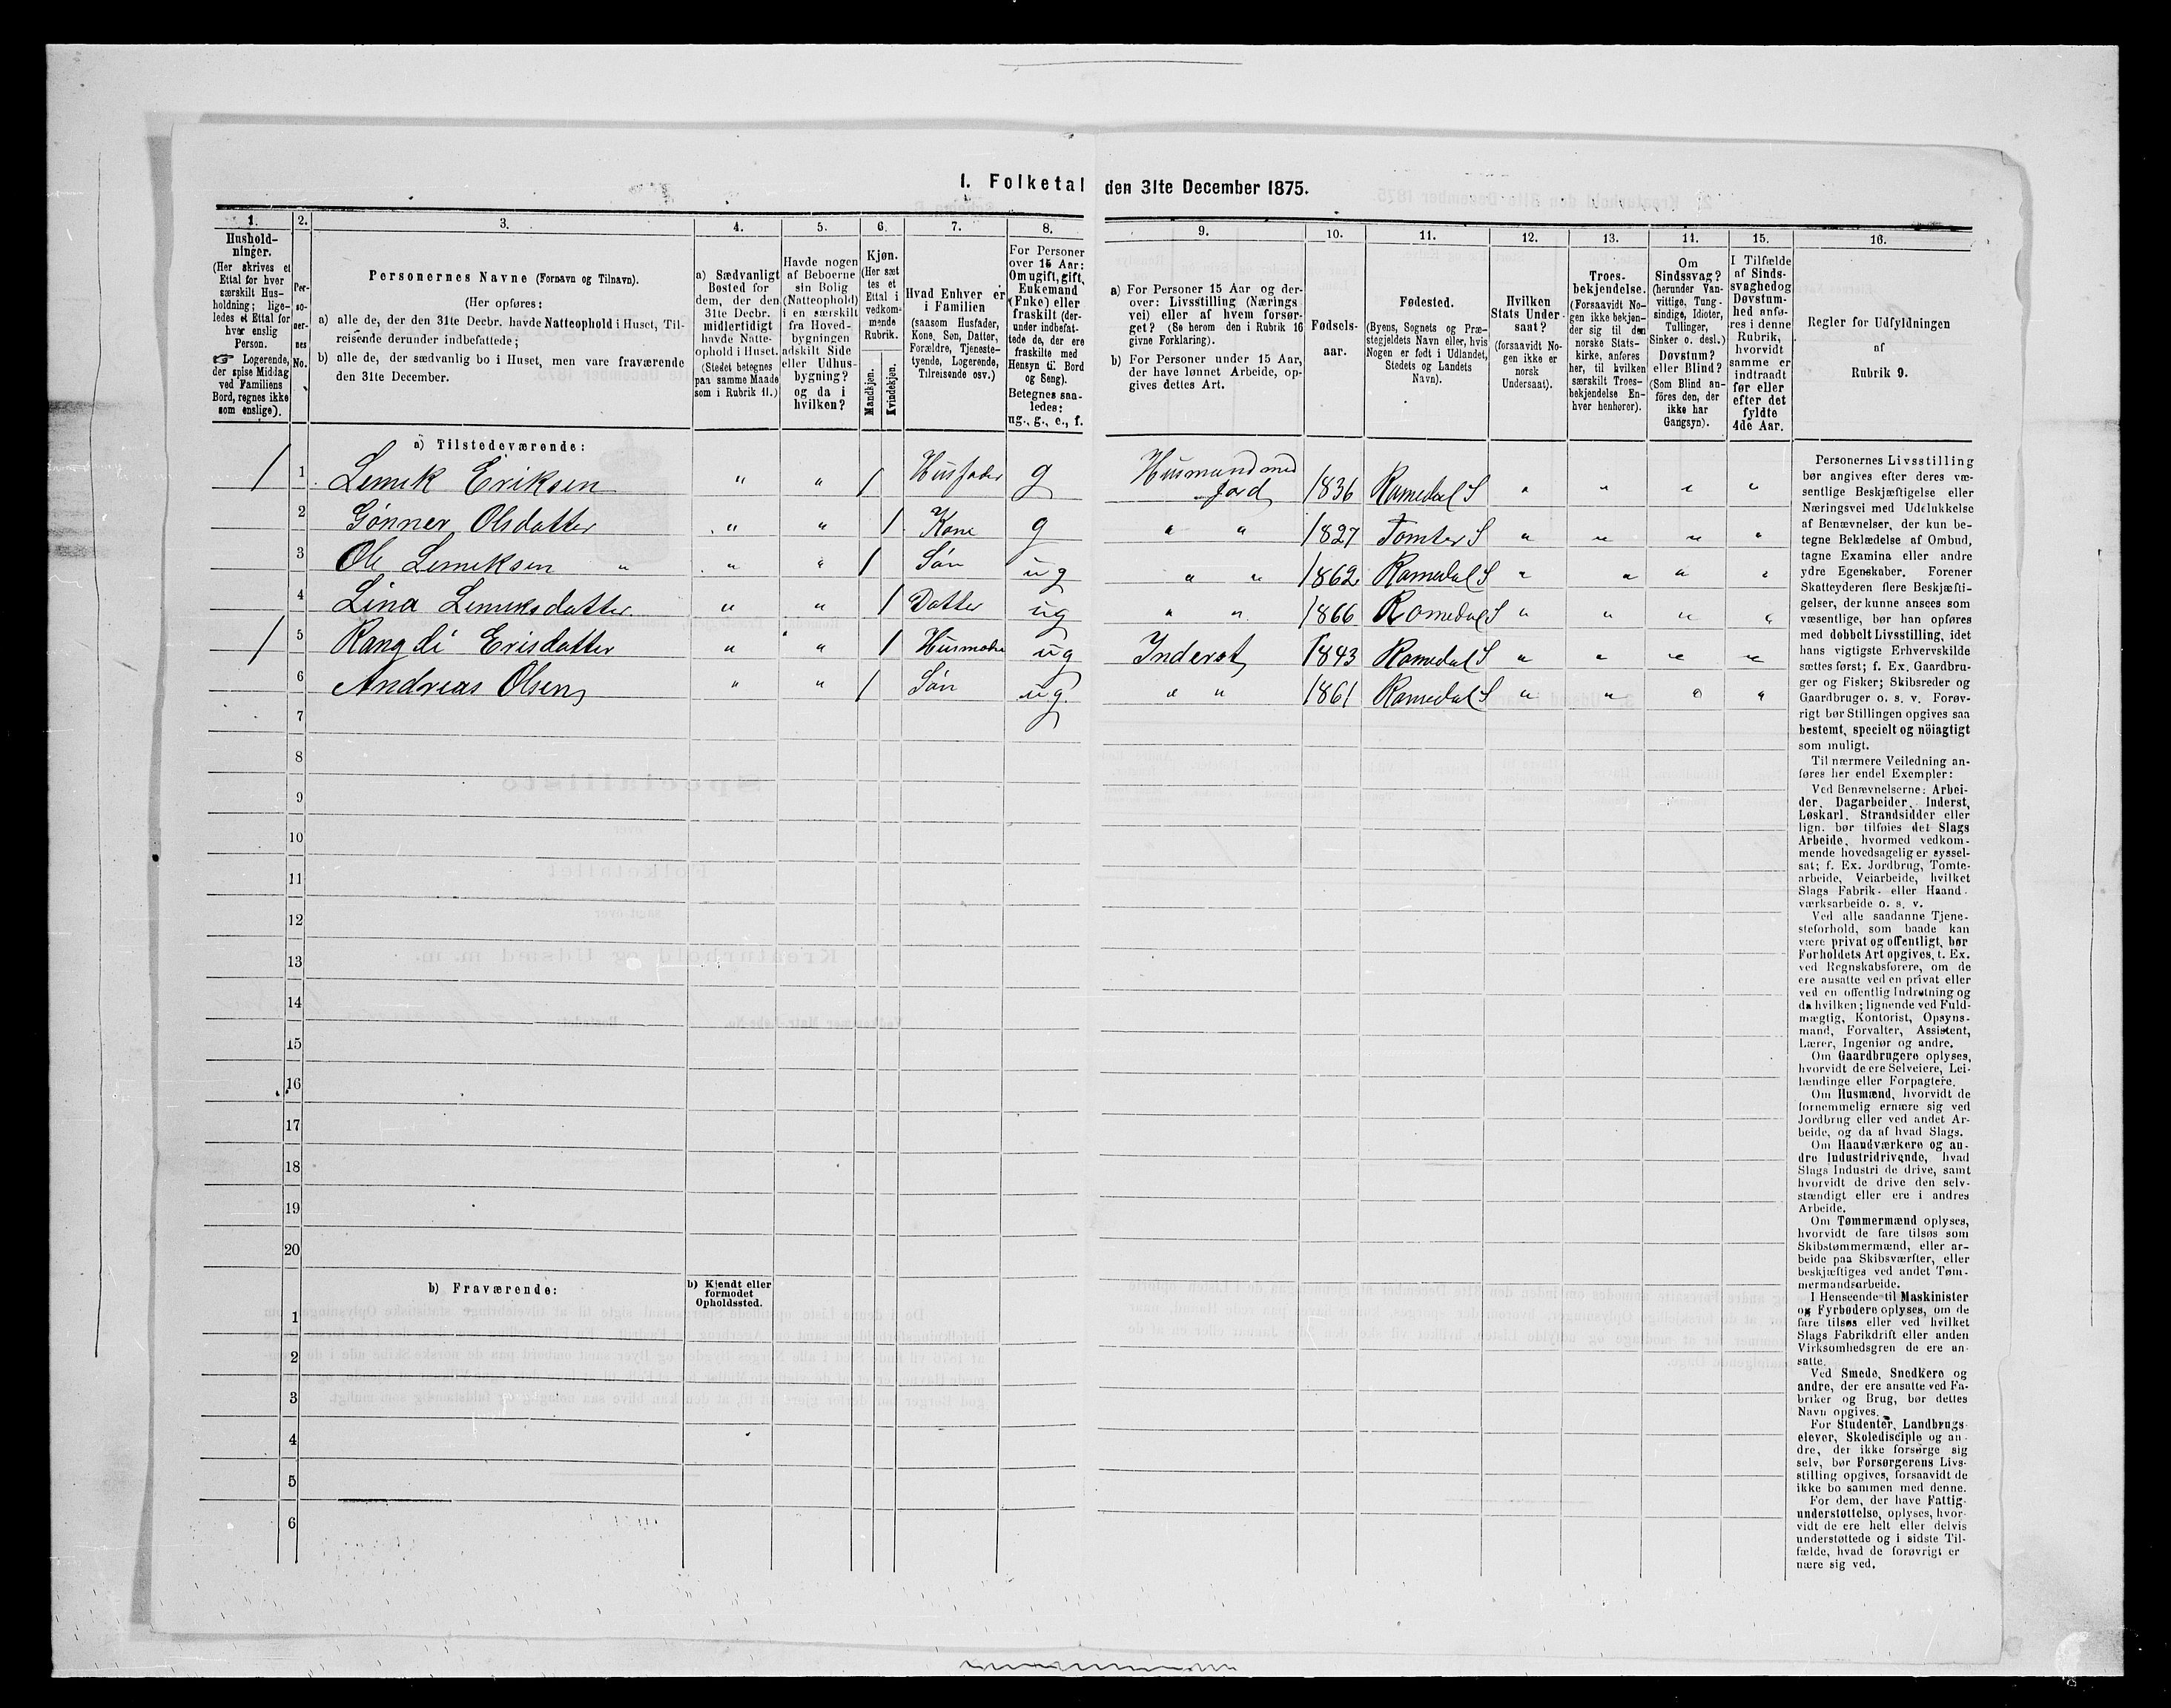 1. Folketal den 31te December 1875.
1.
Hushold-
ninger.
(Her skrives et
Ettal for hver
særskilt Hus-
holdning; lige-
ledes et Ettal for
hver enslig
Person.
☞ Logerende,
der spise Middag
ved Familiens
Bord, regnes ikke
som enslige).
2.
Per-
so-
ner-
nes
No.
3.
Personernes Navne (Fornavn og Tilnavn).
(Her opføres:
a) alle de, der den 31te Decbr. havde Natteophold i Huset, Til-
reisende derunder indbefattede;
b) alle de, der sædvanlig bo i Huset, men vare fraværende
den 31te December.
4.
a) Sædvanligt
Bosted for
dem, der den
31te Decbr.
midlertidigt
havde Natte-
ophold i Huset.
(Stedet betegnes
paa samme Maade
som i Rubrik 11.)
5.
Havde nogen
af Beboerne
sin Bolig
(Natteophold)
i en særskilt
fra Hoved-
bygningen
adskilt Side
eller Udhus-
bygning?
og da i
hvilken?
6.
Kjøn.
(Her sæt
tes et
Ettal i
vedkom-
mende
Rubrik.
Mandkjøn.
Kvindekjøn.
7.
Hvad Enhver er
i Familien
(saasom Husfader,
Kone, Søn, Datter,
Forældre, Tjeneste-
tyende, Logerende,
Tilreisende osv.)
8.
For Personer
over 15 Aar:
Om ugift, gift,
Enkemand
(Enke) eller
fraskilt (der-
under indbefat-
tede de, der ere
fraskilte med
Hensyn til Bord
og Seng).
Betegnes saa-
ledes:
ug., g., e., f.
9.
a) For Personer 15 Aar og der-
over: Livsstilling (Nærings
vei) eller af hvem forsør-
get? (Se herom den i Rubrik 16
givne Forklaring).
b) For Personer under 15 Aar,
der have lønnet Arbeide, op-
gives dettes Art.
10.
Fødsels-
aar.
11.
Fødested.
(Byens, Sognets og Præ-
stegjeldets Navn eller, hvis
Nogen er født i Udlandet,
Stedets og Landets
Navn).
12.
Hvilken
Stats Under
saat?
(forsaavidt No-
gen ikke er
norsk
Undersaat).
13.
Troes-
bekjendelse.
(Forsaavidt No-
gen ikke bekjen-
der sig til den
norske Stats-
kirke, anføres
her, til hvilken
særskilt Troes-
bekjendelse En-
hver henhører).
14.
Om
Sindssvag?
(herunder Van-
vittige, Tung-
sindige, Idioter,
Tullinger,
Sinker o. desl.)
Døvstum?
eller Blind?
(Som Blind an-
føres den, der
ikke har
Gangsyn).
15.
I Tilfælde
af Sinds-
svaghed og
Døvstum-
hed anfø-
res i denne
Rubrik,
hvorvidt
samme er
indtraadt
før eller
efter det
fyldte
4de Aar.
16.
Regler for Udfyldningen
af
Rubrik 9.
a) Tilstedeværende:
1 1 Lemik Eriksen " " 1 Husfader g Husmand med Jord 1836 Romedal S " " " "
2 Gønner Olsdatter " " 1 Kone g " " 1827 Tomter S " " " "
3 Ole Lemiksen " " " 1 Søn ug " " 1862 Romedal S " " " "
4 Lina Lemiksdatter " " 1 Datter ug " " 1866 Romedal S " " " "
1 5 Rangdi Erisdatter " " 1 Husmoder ug Inderst 1843 Romedal S " " " "
6 Andreas Olsen " " 1 Søn ug. " " 1861 Romedal S " " " "
7
8
9
10
11
12
13
14
15
16
17
18
19
20
b) Fraværende:
b) Kjendt eller
formodet
Opholdssted.
1
2
3
4
5
6
Personernes Livsstilling
bør angives efter deres væ-
sentlige Beskjæftigelse eller
Næringsvei med Udelukkelse
af Benævnelser, der kun be-
tegne Beklædelse af Ombud,
tagne Examina eller andre
ydre Egenskaber. Forener
Skatteyderen flere Beskjæfti-
gelser, der kunne ansees som
væsentlige, bør han opføres
med dobbelt Livsstilling, idet
hans vigtigste Erhvervskilde
sættes først; f. Ex. Gaardbru-
ger og Fisker; Skibsreder og
Gaardbruger o. s. v. Forøv-
rigt bør Stillingen opgives saa
bestemt, specielt og nöiagtigt
som muligt.
Til nærmere Veiledning an-
føres her endel Exempler:
Ved Benævnelserne: Arbei-
der, Dagarbeider, Inderst,
Løskarl, Strandsidder eller
lign. bør tilføies det Slags
Arbeide, hvormed vedkom-
mende hovedsagelig er syssel-
sat; f. Ex. Jordbrug, Tomte-
arbeide, Veiarbeide, hvilket
Slags Fabrik- eller Haand-
værksarbeide o. s. v.
Ved alle saadanne Tjene-
steforhold, som baade kan
være privat og offentligt, bør
Forholdets Art opgives, t. Ex.
ved Regnskabsførere, om de
ere ansatte ved en privat eller
ved en offentlig Indretning og
da hvilken; lignende ved Fuld-
mægtig, Kontorist, Opsyns-
mand, Forvalter, Assistent,
Lærer, Ingeniør og andre.
Om Gaardbrugere oplyses,
hvorvidt de ere Selveiere, Lei-
lændinge eller Forpagtere.
Om Husmænd, hvorvidt de
fornemmelig ernære sig ved
Jordbrug eller ved andet Ar-
beide, og da af hvad Slags.
Om Haandværkere og an-
dre Industridrivende, hvad
Slags Industri de drive, samt
hvorvidt de drive den selv-
stændigt eller ere i andres
Arbeide.
Om Tømmermænd oplyses,
hvorvidt de fare tilsøs som
Skibstømmermænd, eller ar-
beide paa Skibsværfter, eller
beskjæftiges ved andet Tøm-
mermandsarbeide.
I Henseende til Maskinister
og Fyrbødere oplyses, om de
fare tilsøs eller ved hvilket
Slags Fabrikdrift eller anden
Virksomhedsgren de ere an-
satte.
Ved Smede, Snedkere og
andre, der ere ansatte ved Fa-
briker og Brug, bør dettes
Navn opgives.
For Studenter, Landbrugs-
elever, Skoledisciple og an-
dre, der ikke forsørge sig
selv, bør Forsørgerens Livs-
stilling opgives, forsaavidt de
ikke bo sammen med denne.
For dem, der have Fattig-
understøttelse, oplyses, hvor-
vidt de ere helt eller delvis
understøttede og i sidste Til-
fælde, hvad de forøvrigt er
nære sig ved.